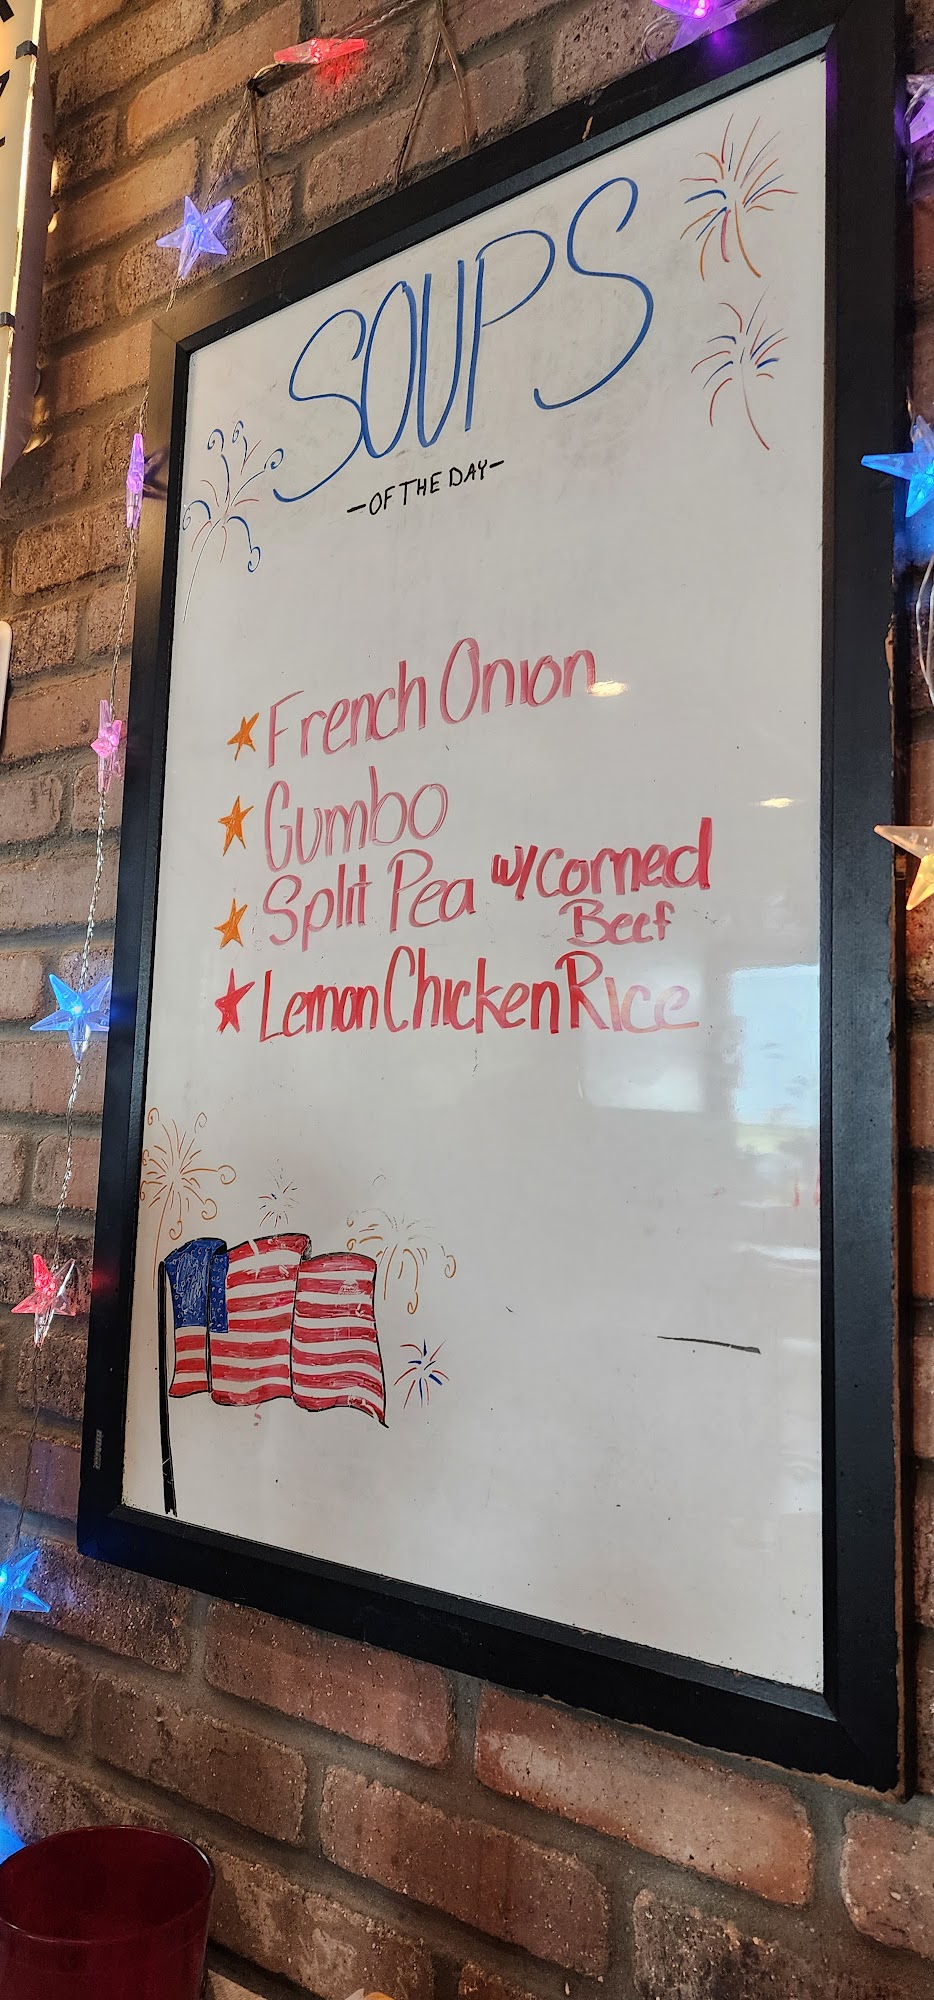 SOUPS
-OF THE DAY-
French Onion
Gumbo
Split Pea w/ Corned
Beef
Lemon Chicken Rice